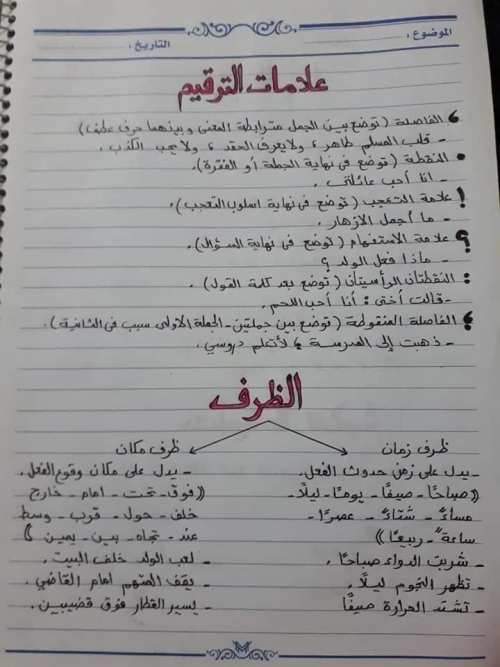 الموضوع :
التاريخ :
علامات الترقيم
، الفاصلة (توضع بين الجمل مترابطة المعنى وبينهما حرف عطف)
- قلب المسلم طاهر ، ولا يعرف الحقد ، ولا يحب الكذب .
. النقطة (توضع في نهاية الجملة أو الفقرة).
- انا أحب عائلتي .
! علامة التعجب (توضع في نهاية اسلوب التعجب).
- ما أجمل الازهار .
؟ علامة الاستفهام (توضع في نهاية السؤال).
- ماذا فعل الولد ؟
: النقطتان الرأسيتان (توضع بعد كلمة القول).
- قالت أختي : أنا أحب اللحم .
؛ الفاصلة المنقوطة (توضع بين جملتين - الجملة الاولى سبب في الثانية).
- ذهبت إلى المدرسة ؛ لأتعلم دروسي .
الظرف
ظرف زمان
- يدل على زمن حدوث الفعل.
((صباحًا - صيفًا - يومًا - ليلًا -
مساءً - شتاءً - عصرًا -
ساعةً - ربيعًا))
- شربت الدواء صباحًا .
- تظهر النجوم ليلًا .
- تشتد الحرارة صيفًا
ظرف مكان
- يدل على مكان وقوع الفعل.
((فوق - تحت - امام - خارج
خلف - حول - قرب - وسط
عند - تجاه - بين - يمين))
- لعب الولد خلف البيت .
- يقف المتهم امام القاضي .
- يسير القطار فوق قضيبين .